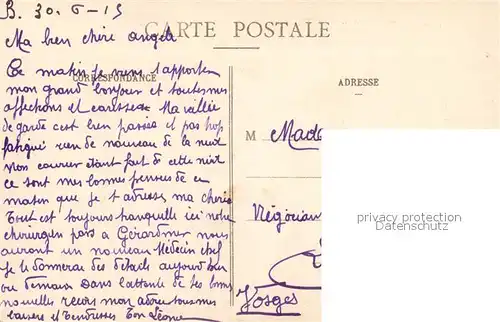 B. 30. 6 - 15
CARTE POSTALE
Ma bien chère Angèle
CORRESPONDANCE
ADRESSE
Ce matin je viens t'apporter
mon grand bonjour et toutes mes
affections et caresses. Ma veillée
de garde c'est bien passée et pas trop
fatigué rien de nouveau de la nuit
mon courrier étant fait de cette nuit
ce sont mes bonnes pensées de ce
matin que je t'adresse, ma chérie
Tout est toujours tranquille ici notre
chirurgien part à Gérardmer nous
aurons un nouveau Médecin chef
Je te donnerai des détails aujourd'hui
ou demain Dans l'attente de tes bonnes
nouvelles reçois mon adorée tous mes
baisers et tendresses Ton Léon
M Mada
Négocian
Vosges
privacy protection
Datenschutz